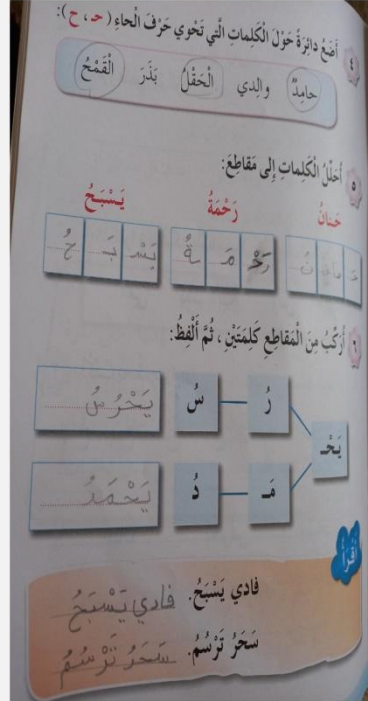 ٤ أَضَعُ دائِرَةً حَوْلَ الْكَلِماتِ الَّتي تَحْوي حَرْفَ الْحاءِ ( حـ ، ح ):
حامِدٌ والِدي الْحَقْلُ بَذَرَ الْقَمْحُ
٥ أُحَلِّلُ الْكَلِماتِ إِلى مَقاطِعَ:
حَنانُ رَحْمَةُ يَسْبَحُ
حَـ نا نُ رَحْـ مَـ ةُ يَسْـ بَـ حُ
٦ أُرَكِّبُ مِنَ الْمَقاطِعِ كَلِمَتَيْنِ ، ثُمَّ أَلْفِظُ:
رُ سُ يَحْرُسُ
يَحْـ
مَـ دُ يَحْمَدُ
أَقْرَأُ
فادي يَسْبَحُ. فادي يَسْبَحُ
سَحَرُ تَرْسُمُ. سَحَرُ تَرْسُمُ